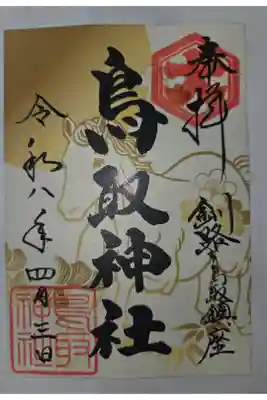 奉拝
釧路之国鳥取鎮座
鳥取神社
令和八年四月三日
鳥取
神社